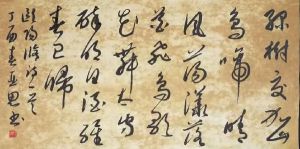 綠樹交加山
鳥啼晴
風蕩漾落
花飛鳥歌
花舞太守
醉明日酒醒
春已歸
歐陽脩詩一首
丁酉春
書